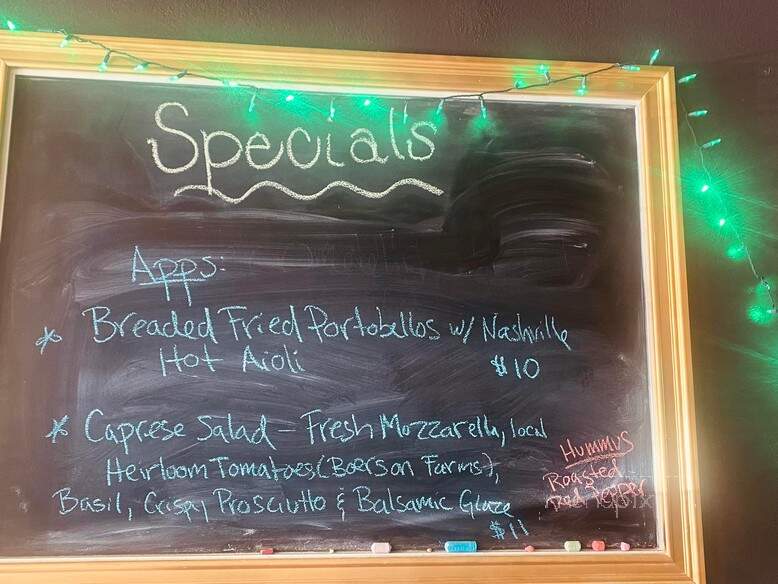 Specials
Apps:
* Breaded Fried Portobellos w/ Nashville
Hot Aioli $10
* Caprese Salad - Fresh Mozzarella, local
Heirloom Tomatoes (Boerson Farms),
Basil, Crispy Prosciutto & Balsamic Glaze
$11
Hummus
Roasted
red pepper